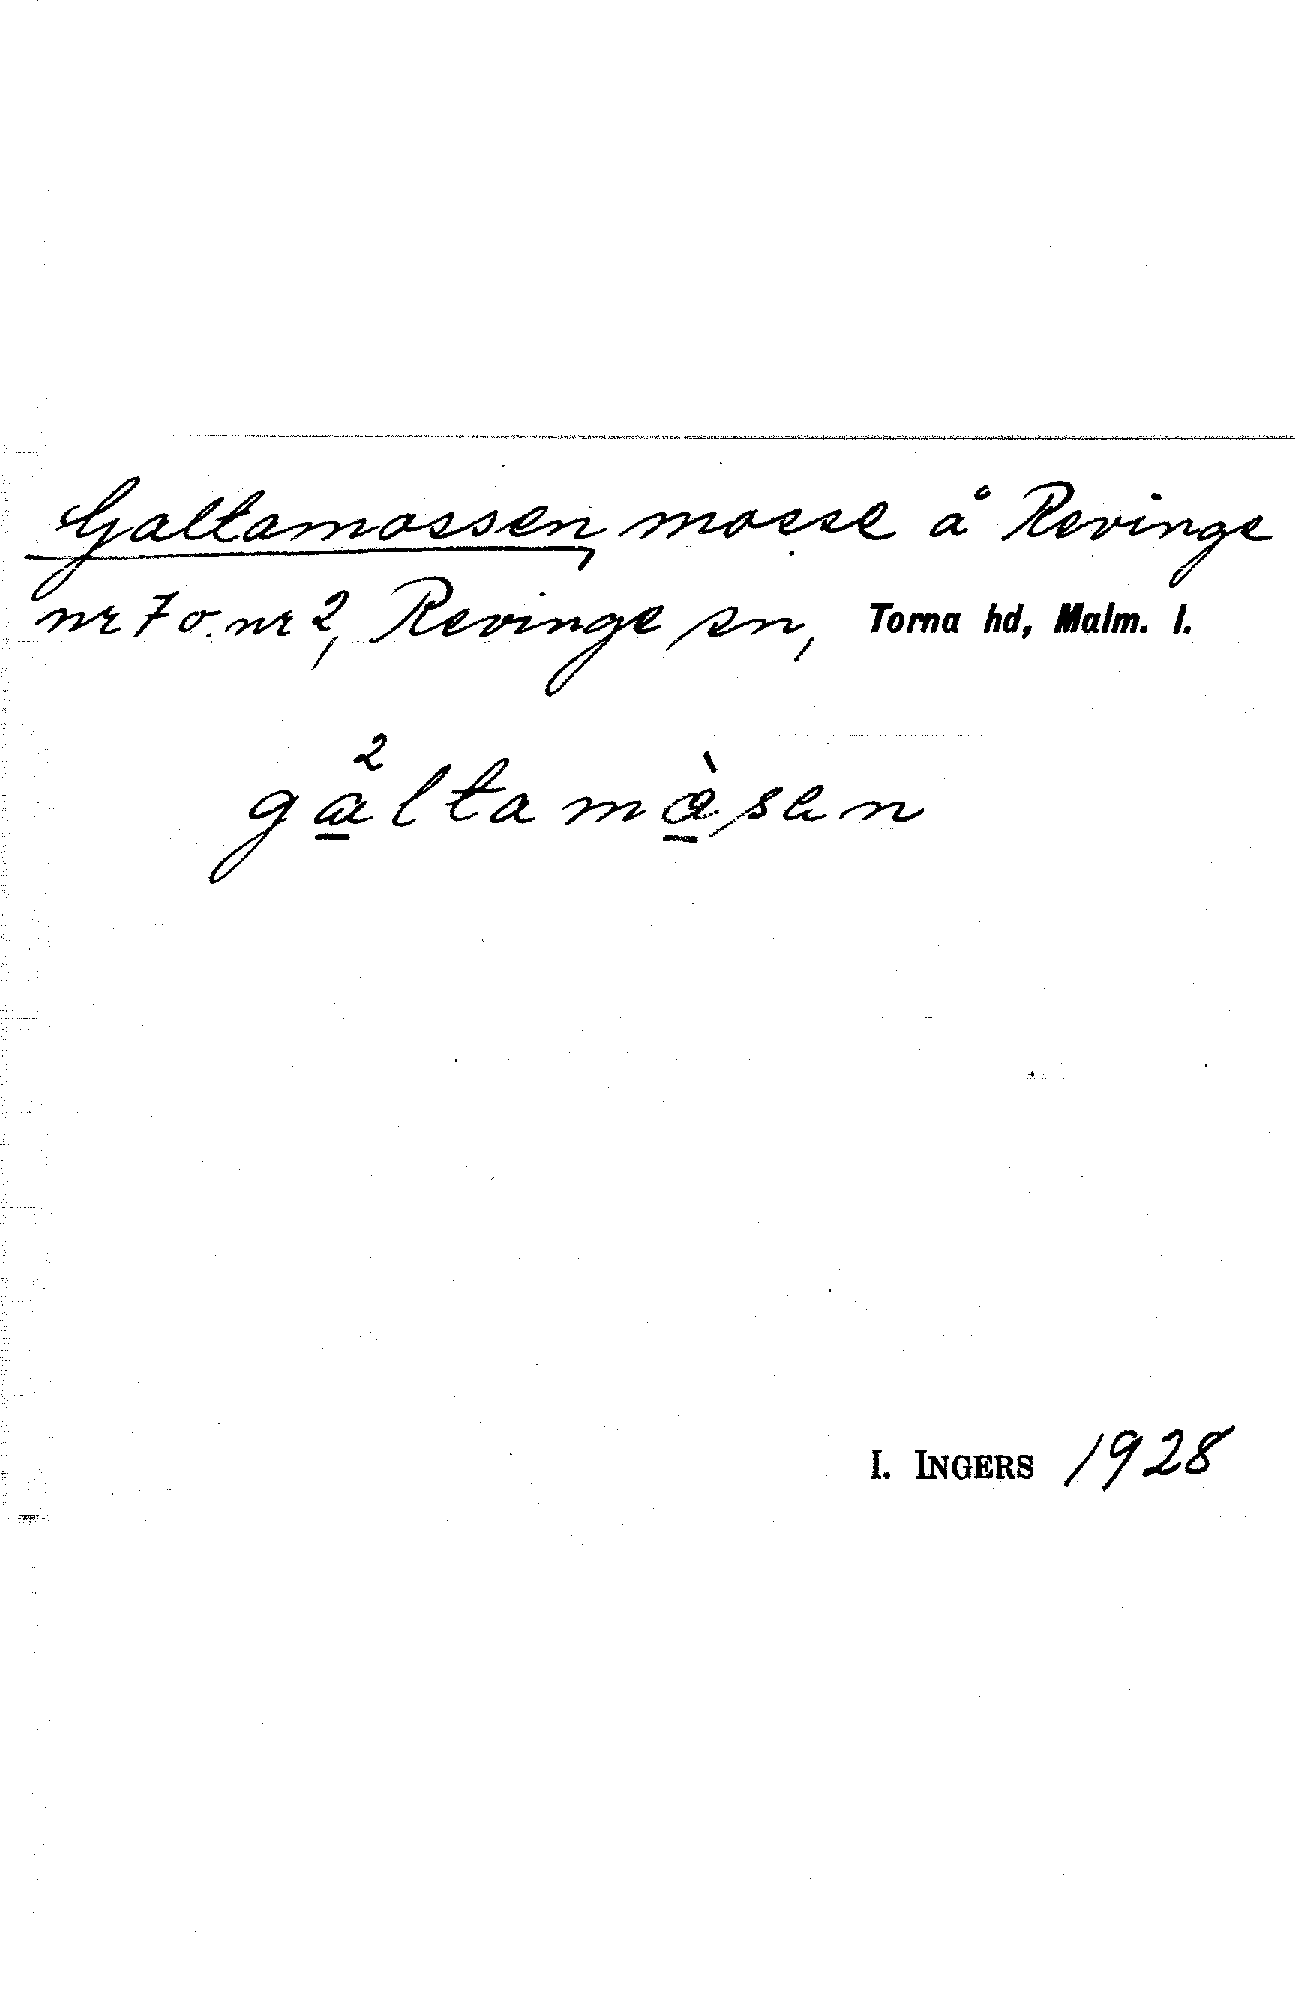 Galtamossen, mosse å Revinge
nr 7 o. nr 2, Revinge sn, Torna hd, Malm. l.
ga²ltamòsen
I. INGERS 1928